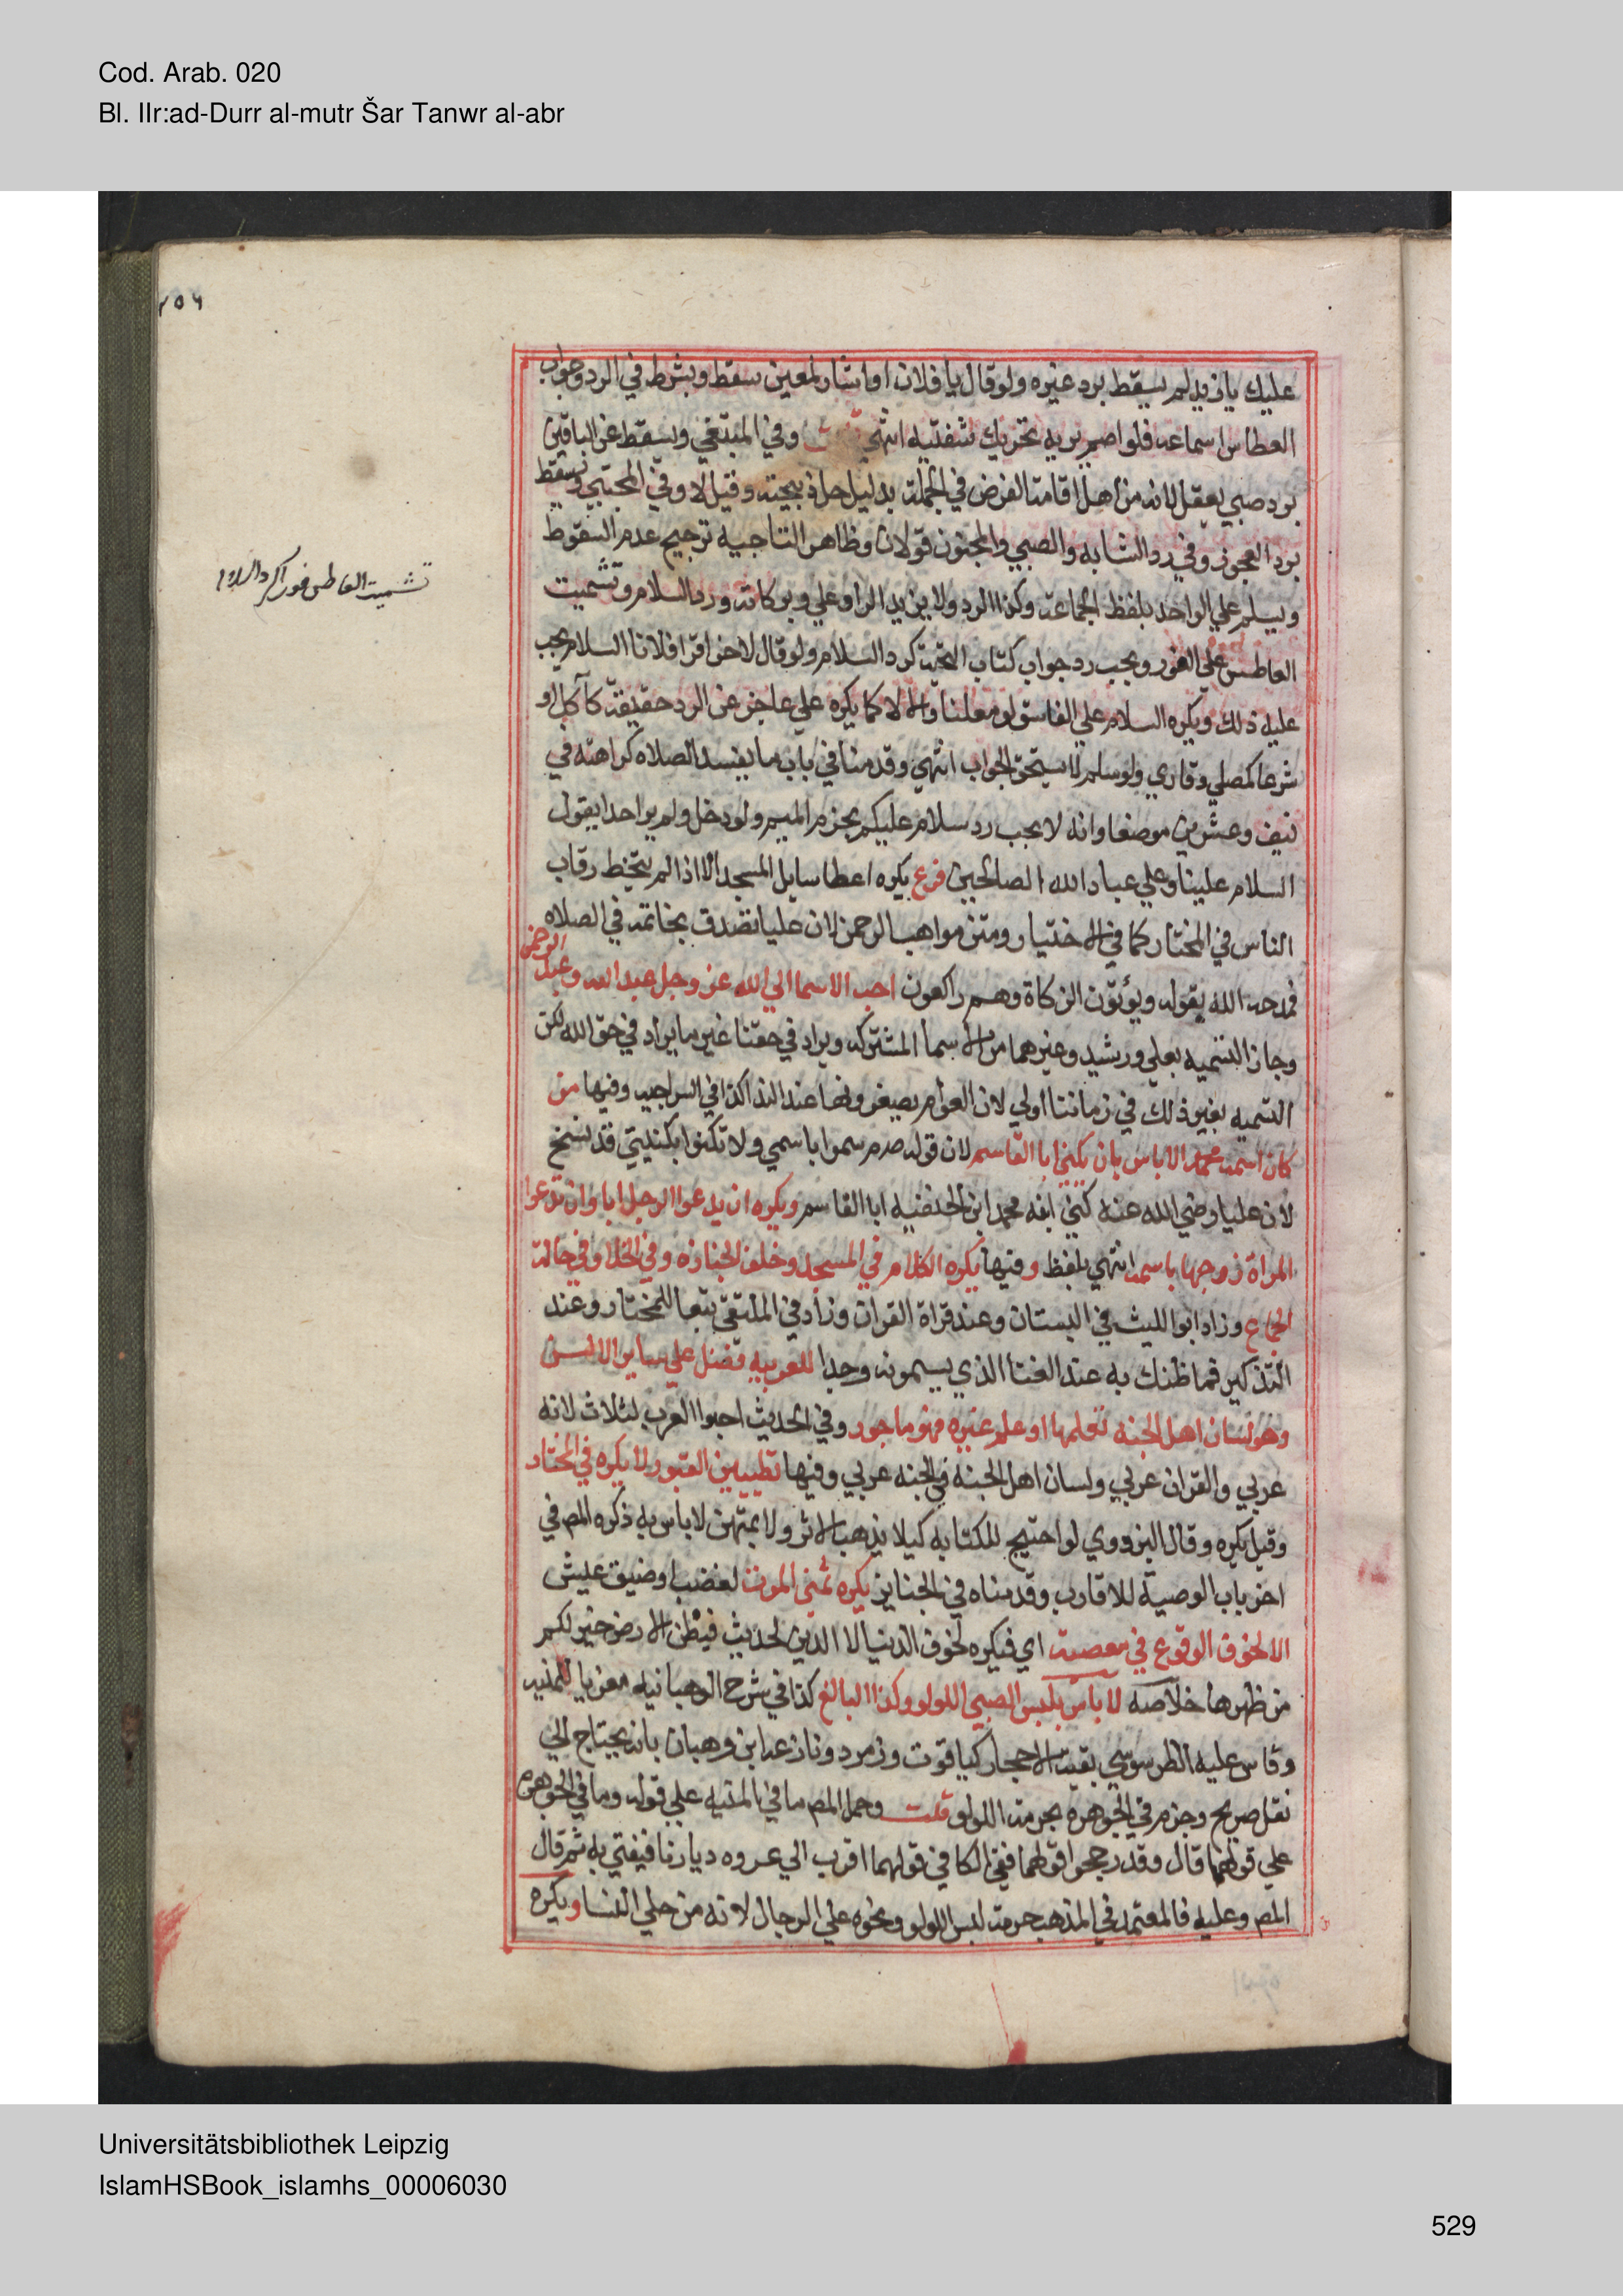 Cod. Arab. 020
Bl. IIr:ad-Durr al-mutr Šar Tanwr al-abr
عليك يا زيد لم يسقط برد غيره ولو قال يا فلان او اشار لمعين سقط وبشرط في الرد وجواب
العطاس اسماعه فلو اصم يريه تحريك شفتيه انتهي قلت وفي المبتغي ويسقط عن الباقين
برد صبي يعقل لانه من اهل اقامة الفرض في الجملة بدليل حل ذبيحته وقيل لا وفي المجتبي ويسقط
برد العجوز وفي رد الشابه والصبي والمجنون قولان وظاهر التاجيه ترجيح عدم السقوط
ويسلم علي الواحد بلفظ الجماعة وكذا الرد ولا يزيد الراد علي وبركاته ورد السلام وتشميت
تشميت العاطس فورا كرد السلام
العاطس علي الفور ويجب رد جواب كتاب التحية كرد السلام ولو قال لاخر اقرا فلانا السلام يجب
عليه ذلك ويكره السلام علي الفاسق لو معلنا والا لا كما يكره علي عاجز عن الرد حقيقة كآكل او
شرعا كمصلي وقاري ولو سلم لا يستحق الجواب انتهي وقدمنا في باب ما يفسد الصلاه كراهته في
نيف وعشرين موضعا وانه لا يجب رد سلام عليكم بجزم الميم ولو دخل ولم ير احدا يقول
السلام علينا وعلي عباد الله الصالحين فرع يكره اعطا سايل المسجد الا اذا لم يتخط رقاب
الناس في المختار كما في الاختيار ومتن مواهب الرحمن لان عليا تصدق بخاتمه في الصلاه
فمدحه الله بقوله ويؤتون الزكاة وهم راكعون احب الاسما الي الله عز وجل عبد الله وعبد الرحمن
وجاز التسميه بعلي ورشيد وغيرهما من الاسما المشتركه ويراد في حقنا غير ما يراد في حق الله لكن
التسميه بغير ذلك في زماننا اولي لان العوام يصغرونها عند الندا كذا في السراجيه وفيها من
كان اسمه محمد لا باس بان يكني ابا القاسم لان قوله صم سموا باسمي ولا تكنوا بكنيتي قد نسخ
لان عليا رضي الله عنه كني ابنه محمد ابن الحنفيه ابا القاسم ويكره ان يدعوا الرجل اباه وان تدعوا
المراة زوجها باسمه انتهي بلفظ وفيها يكره الكلام في المسجد وخلف الجنازه وفي الخلا وفي حالة
الجماع وزاد ابو الليث في البستان وعند قراة القران وزاد في الملتقي تبعا للمختار وعند
التذكير فما ظنك به عند الغنا الذي يسمونه وجدا للعربيه فضل علي ساير الالسن
وهو لسان اهل الجنه تعلمها او علم غيره فهو ماجور وفي الحديث احبوا العرب لثلاث لانه
عربي والقران عربي ولسان اهل الجنه في الجنه عربي وفيها تطيين القبور ولا يكره في المختار
وقيل يكره وقال البزدوي لو احتيج للكتابه كيلا يذهب الاثر ولا يمتهن لا باس به ذكره المص في
اخر باب الوصية للاقارب وقدمناه في الجنايز يكره تمني الموت لغضب او ضيق عيش
الا لخوف الوقوع في معصية اي فيكره لخوف الدنيا لا الدين لحديث فبطن الارض خير لكم
من ظهرها خلاصه لا باس بلبس الصبي اللولو وكذا البالغ كذا في شرح الوهبانيه معزيا للمنيه
وقاس عليه الطرسوسي بقية الاحجار كياقوت وزمرد ونازعه ابن وهبان بانه يحتاج الي
نقل صريح وجزم في الجوهره بحرمة اللولو قلت وحمل المص ما في المنيه علي قوله وما في الجوهره
علي قولهما قال وقد رجحوا قولهما ففي الكافي قولهما اقرب الي عروه ديارنا فيفتي به ثم قال
المص وعليه فالمعتمد في المذهب حرمة لبس اللولو ونحوه علي الرجال لانه من حلي النسا ويكره
Universitätsbibliothek Leipzig
IslamHSBook_islamhs_00006030
529